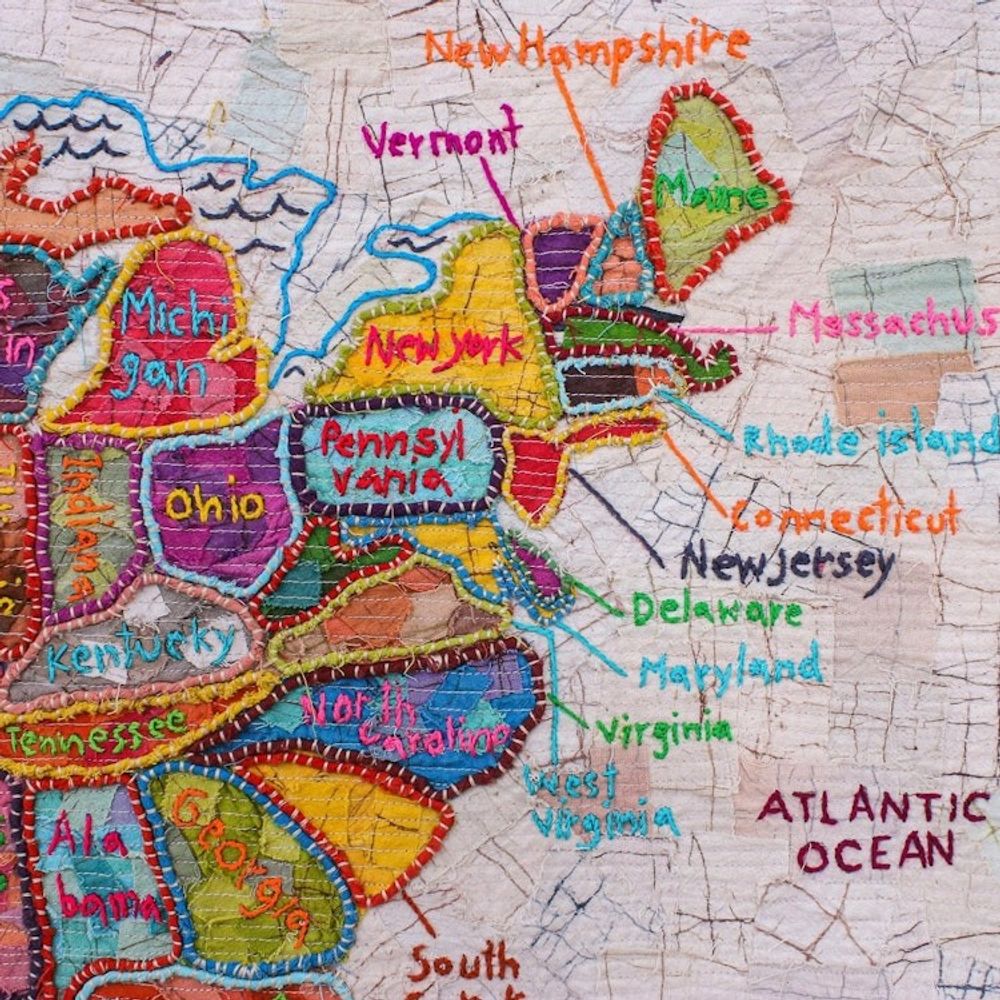 New Hampshire
Vermont
Maine
Michi
gan
New york
Massachus
Pennsyl
vania
Rhode island
Indiana
Ohio
Connecticut
New Jersey
Delaware
Kentucky
Maryland
North
Carolina
Virginia
Tennessee
West
Virginia
ATLANTIC
OCEAN
Georgia
Ala
bama
South